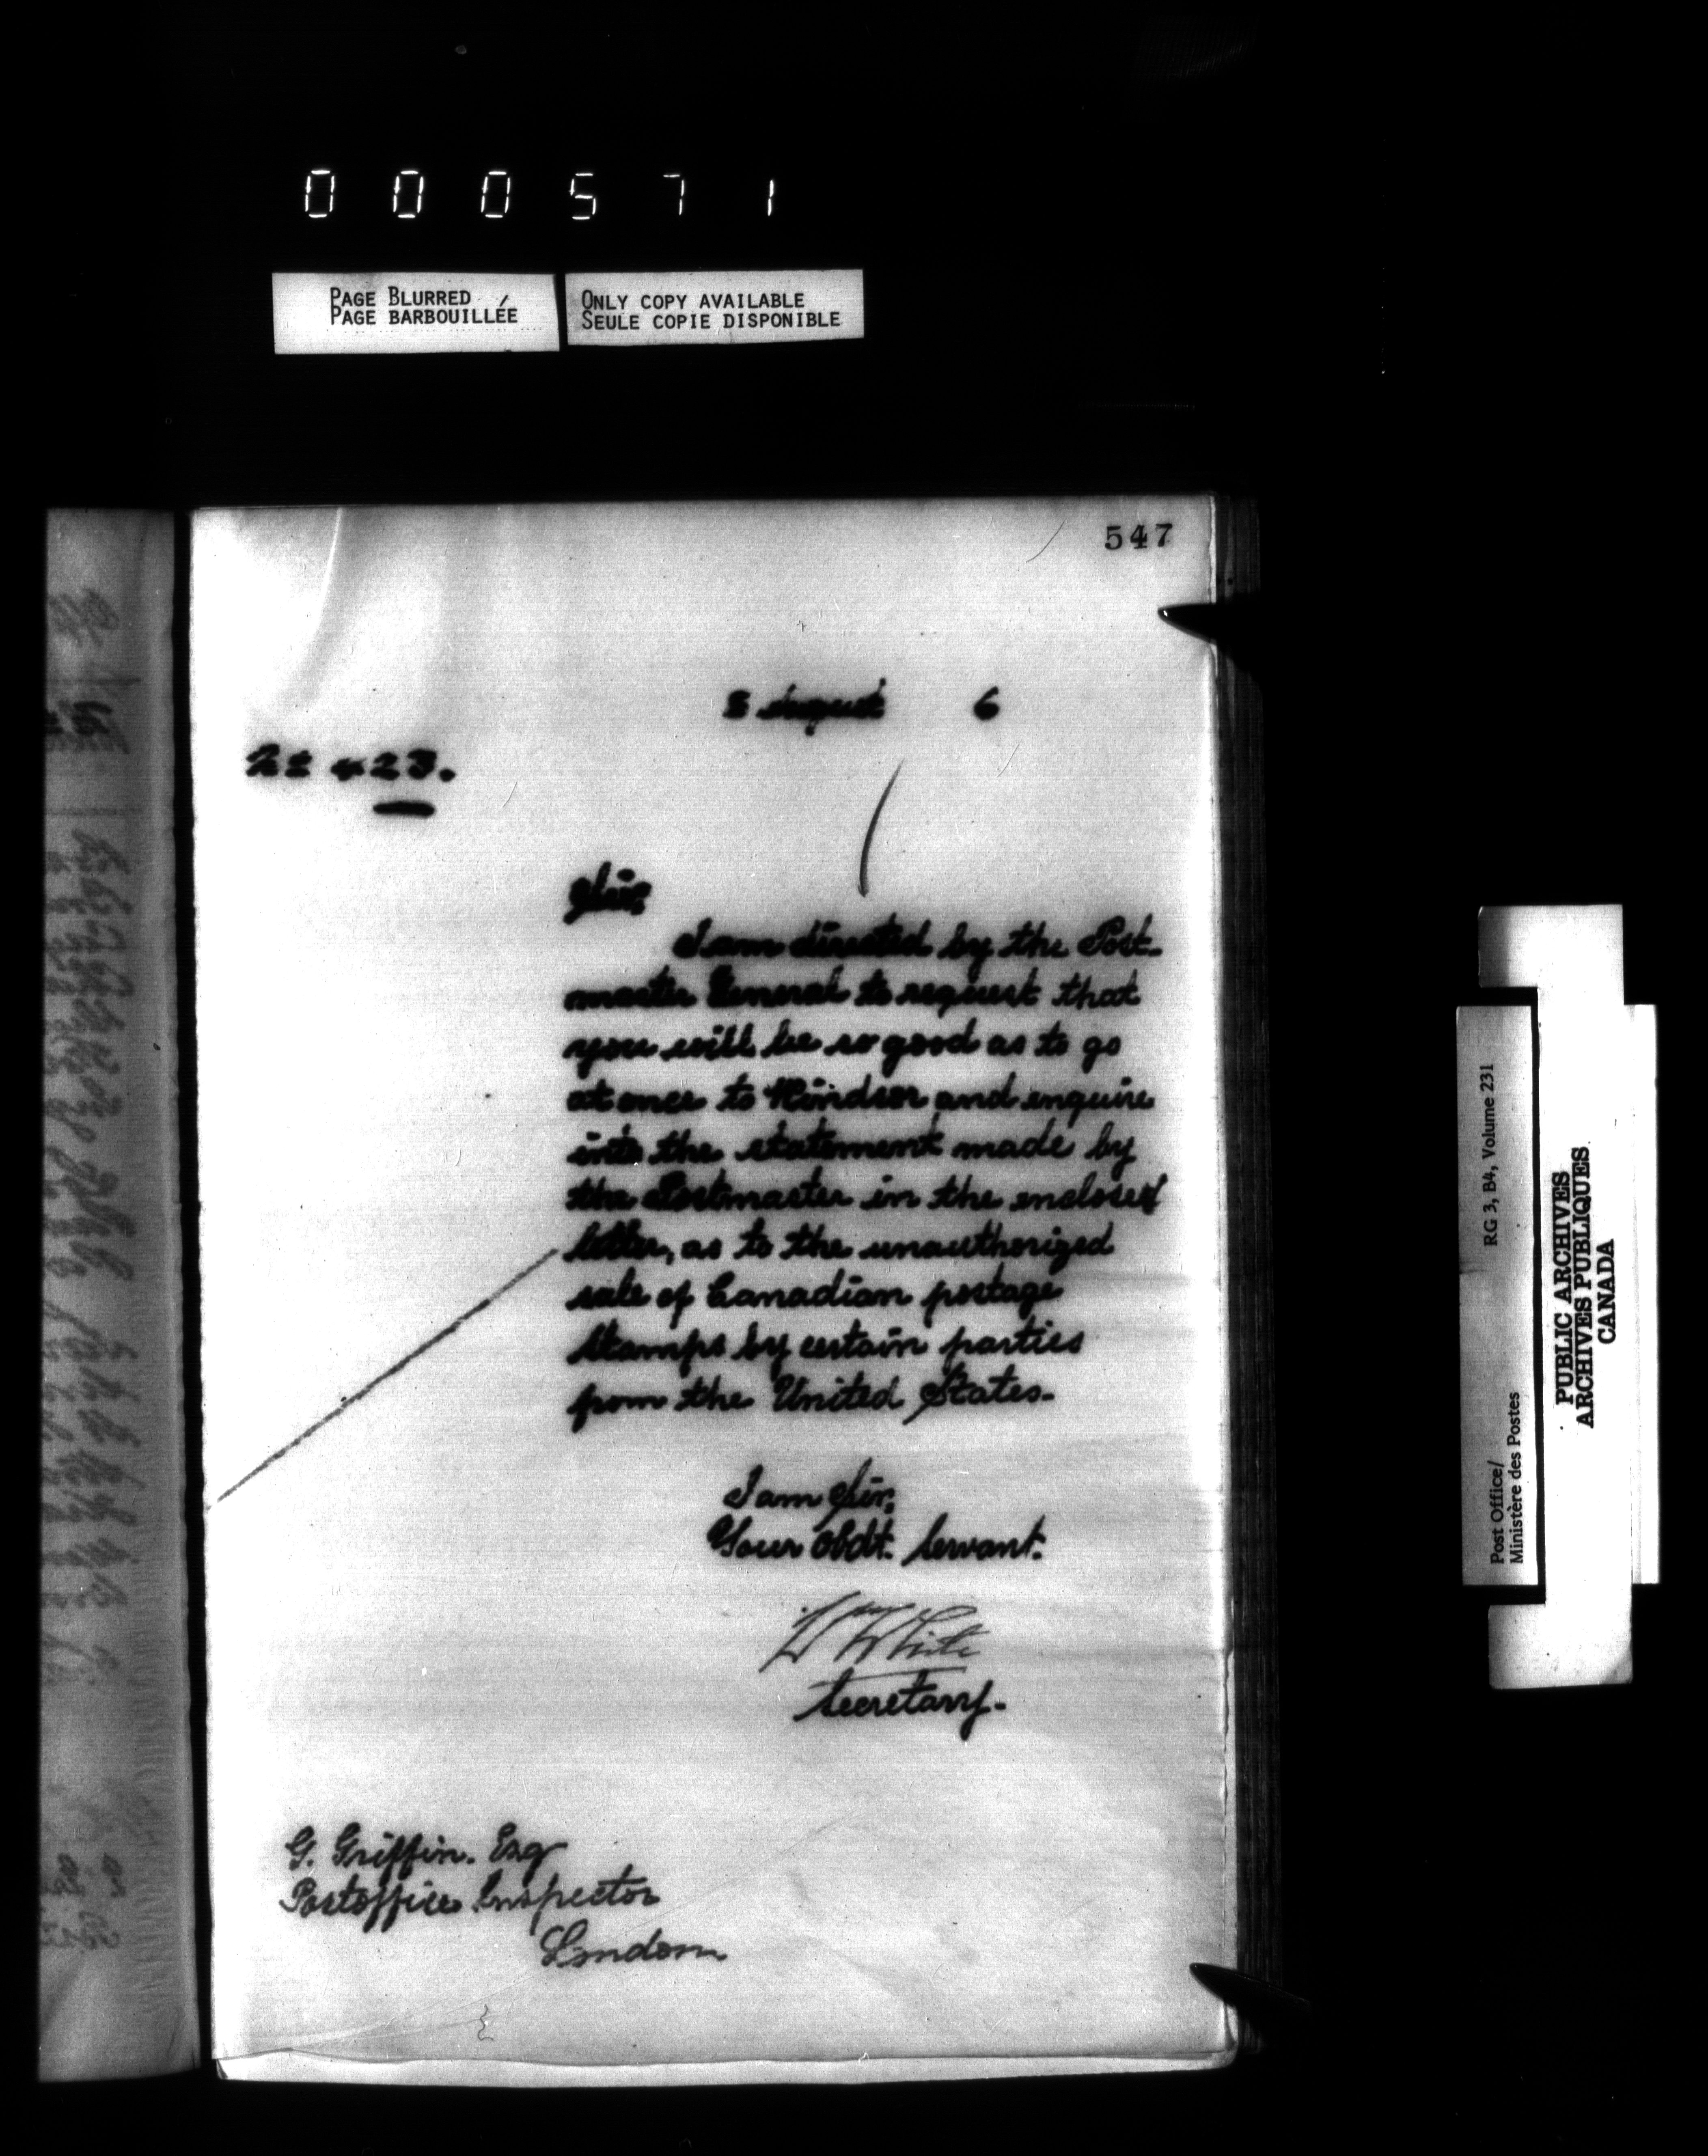 000571
PAGE BLURRED
PAGE BARBOUILLÉE
ONLY COPY AVAILABLE
SEULE COPIE DISPONIBLE
547
August 6
423.
Sir,
I am directed by the Post-
master General to request that
you will be so good as to go
at once to Windsor and enquire
into the statement made by
the Postmaster in the enclosed
letter, as to the unauthorized
sale of Canadian postage
Stamps by certain parties
from the United States.
I am Sir,
Your obdt. Servant.
W White
Secretary.
G. Griffin. Esq
Postoffice Inspector
London
Post Office/
Ministère des Postes
RG 3, B4, Volume 231
PUBLIC ARCHIVES
ARCHIVES PUBLIQUES
CANADA